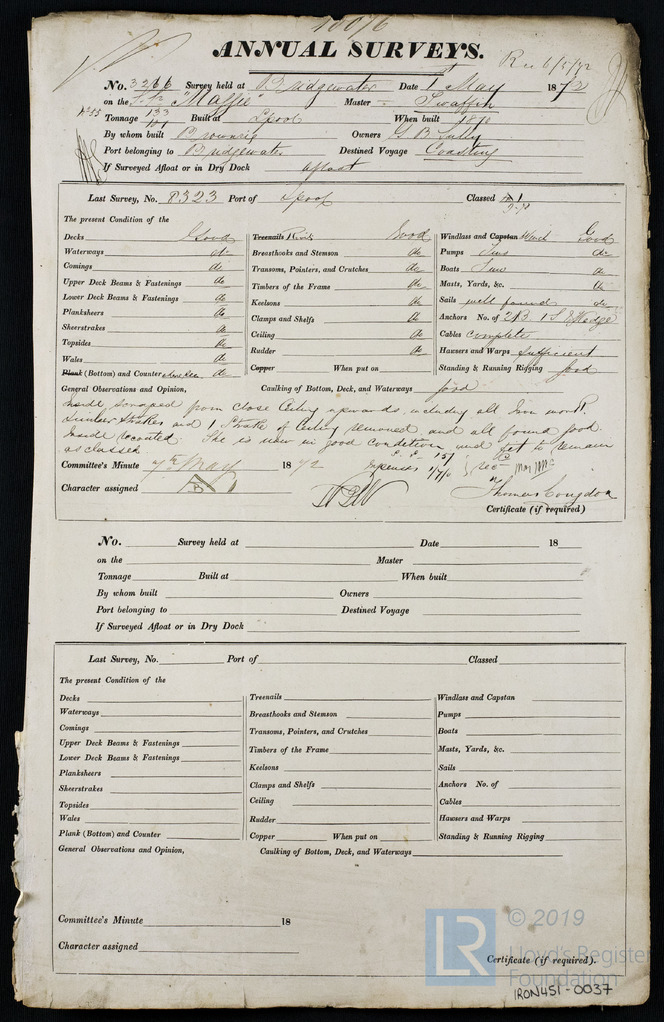 ANNUAL SURVEYS.
Rec 6/5/72
No. 3266 Survey held at Bridgewater Date 1st May 1872
on the "Maffie" Master Swaffin
Tonnage 133 Built at Lpool When built 1870
By whom built Owners G B Sully
Port belonging to Bridgewater Destined Voyage Coasting
If Surveyed Afloat or in Dry Dock afloat
Last Survey, No. 8323 Port of Lpool Classed A 1
The present Condition of the
Decks Good
Waterways do
Comings do
Upper Deck Beams & Fastenings do
Lower Deck Beams & Fastenings do
Planksheers do
Sheerstrakes do
Topsides do
Wales do
Plank (Bottom) and Counter do
Treenails Rivets Good
Breasthooks and Stemson do
Transoms, Pointers, and Crutches do
Timbers of the Frame do
Keelsons do
Clamps and Shelfs do
Ceiling do
Rudder do
Copper When put on
Windlass and Capstan Winch Good
Pumps Two do
Boats do
Masts, Yards, &c. do
Sails well found do
Anchors No. of 2B 1 S & Kedge
Cables complete
Hawsers and Warps Sufficient
Standing & Running Rigging good
General Observations and Opinion, Caulking of Bottom, Deck, and Waterways good
Inside scraped from close Ceiling upwards, including all Iron work.
Limber Strakes and 1 Strake of Ceiling removed and all found good.
Inside recoated. She is now in good condition and fit to remain
as classed
Committee's Minute 7th May 1872
Expenses 1/7/6
Character assigned
Thomas Congdon
Certificate (if required)
No. Survey held at Date 18
on the Master
Tonnage Built at When built
By whom built Owners
Port belonging to Destined Voyage
If Surveyed Afloat or in Dry Dock
Last Survey, No. Port of Classed
The present Condition of the
Decks
Waterways
Comings
Upper Deck Beams & Fastenings
Lower Deck Beams & Fastenings
Planksheers
Sheerstrakes
Topsides
Wales
Plank (Bottom) and Counter
Treenails
Breasthooks and Stemson
Transoms, Pointers, and Crutches
Timbers of the Frame
Keelsons
Clamps and Shelfs
Ceiling
Rudder
Copper When put on
Windlass and Capstan
Pumps
Boats
Masts, Yards, &c.
Sails
Anchors No. of
Cables
Hawsers and Warps
Standing & Running Rigging
General Observations and Opinion, Caulking of Bottom, Deck, and Waterways
Committee's Minute 18
Character assigned
Certificate (if required).
LR © 2019
Lloyd's Register
Foundation
IRON451-0037